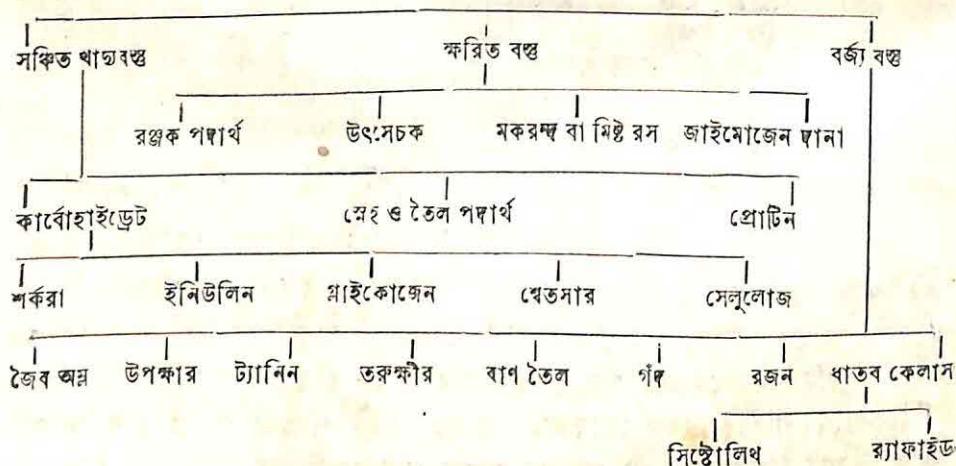 সঞ্চিত খাদ্যবস্তু ক্ষরিত বস্তু বর্জ্য বস্তু
রঞ্জক পদার্থ উৎসেচক মকরন্দ বা মিষ্ট রস জাইমোজেন দানা
কার্বোহাইড্রেট স্নেহ ও তৈল পদার্থ প্রোটিন
শর্করা ইনিউলিন গ্লাইকোজেন শ্বেতসার সেলুলোজ
জৈব অম্ল উপক্ষার ট্যানিন তরুক্ষীর বাণ তৈল গঁদ রজন ধাতব কেলাস
সিষ্টোলিথ র‍্যাফাইড